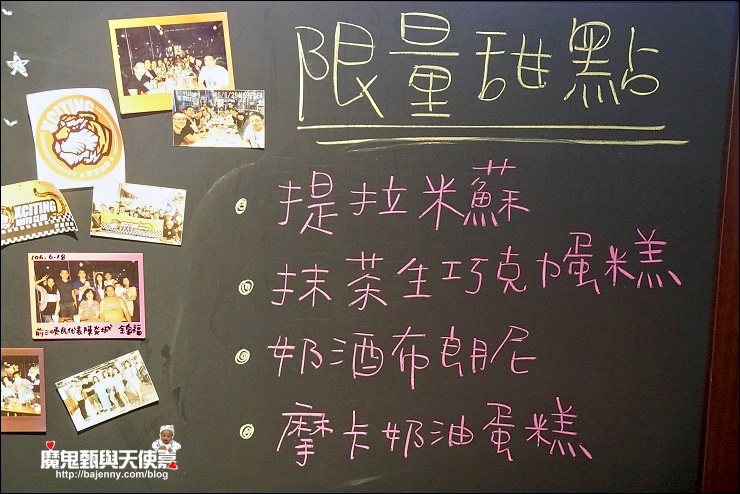 限量甜點
提拉米蘇
抹茶生巧克力蛋糕
奶酒布朗尼
摩卡奶油蛋糕
XCITING
XCITING
106.6.18
全家福
魔鬼甄與天使嘉
http://bajenny.com/blog